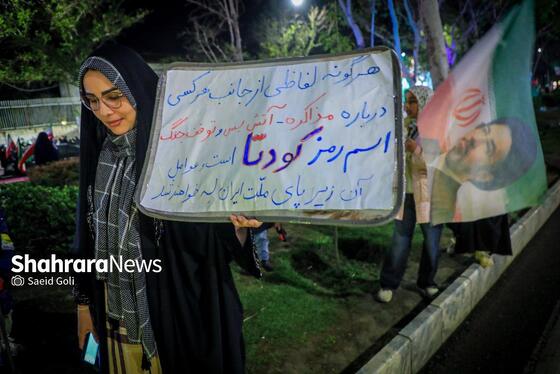 هرگونه لفاظی از جانب هر کسی
درباره مذاکره - آتش بس و توقف جنگ
اسم رمز کودتا است و عوامل
آن زیر پای ملت ایران له خواهند شد
ShahraraNEWS
Saeid Goli